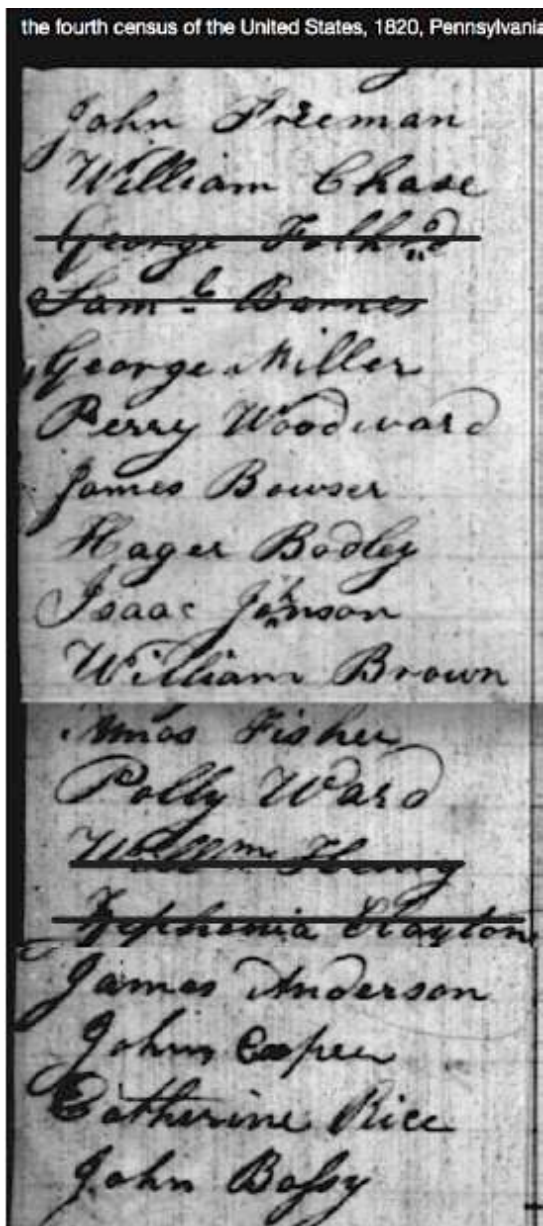 the fourth census of the United States, 1820, Pennsylvania
John Freeman
William Chase
George Folk
Saml Barnes
George Miller
Perry Woodward
James Bowser
Hager Bodley
Isaac Johnson
William Brown
Amos Fisher
Polly Ward
Willm Henry
Zephania Clayton
James Anderson
John Cooper
Catherine Rice
John Bassy